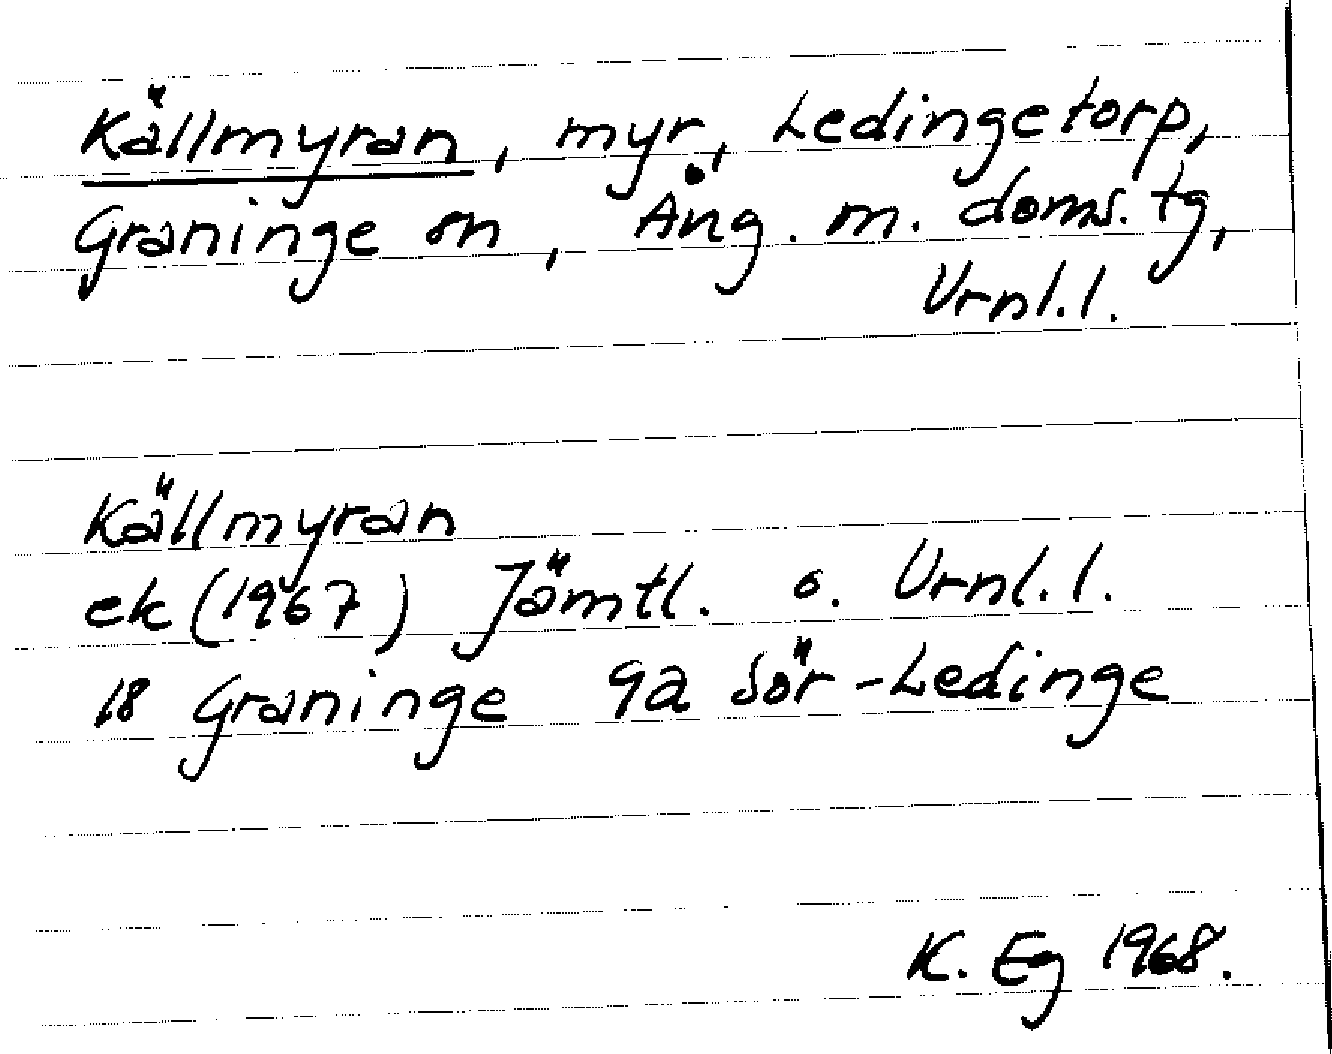 Källmyran, myr, Ledingetorp,
Graninge sn, Ång. m. doms. tg,
Vrnl. l.
Källmyran
ek (1967) Jämtl. o. Vrnl. l.
18 Graninge 9a Sör-Ledinge
K. Eg 1968.